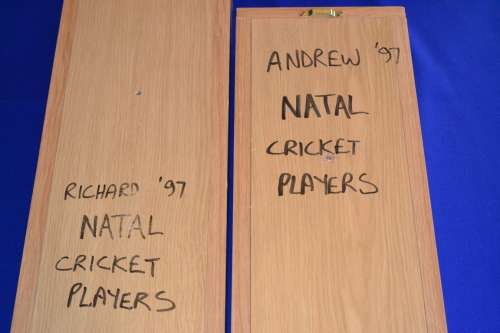 RICHARD '97
NATAL
CRICKET
PLAYERS
ANDREW '97
NATAL
CRICKET
PLAYERS